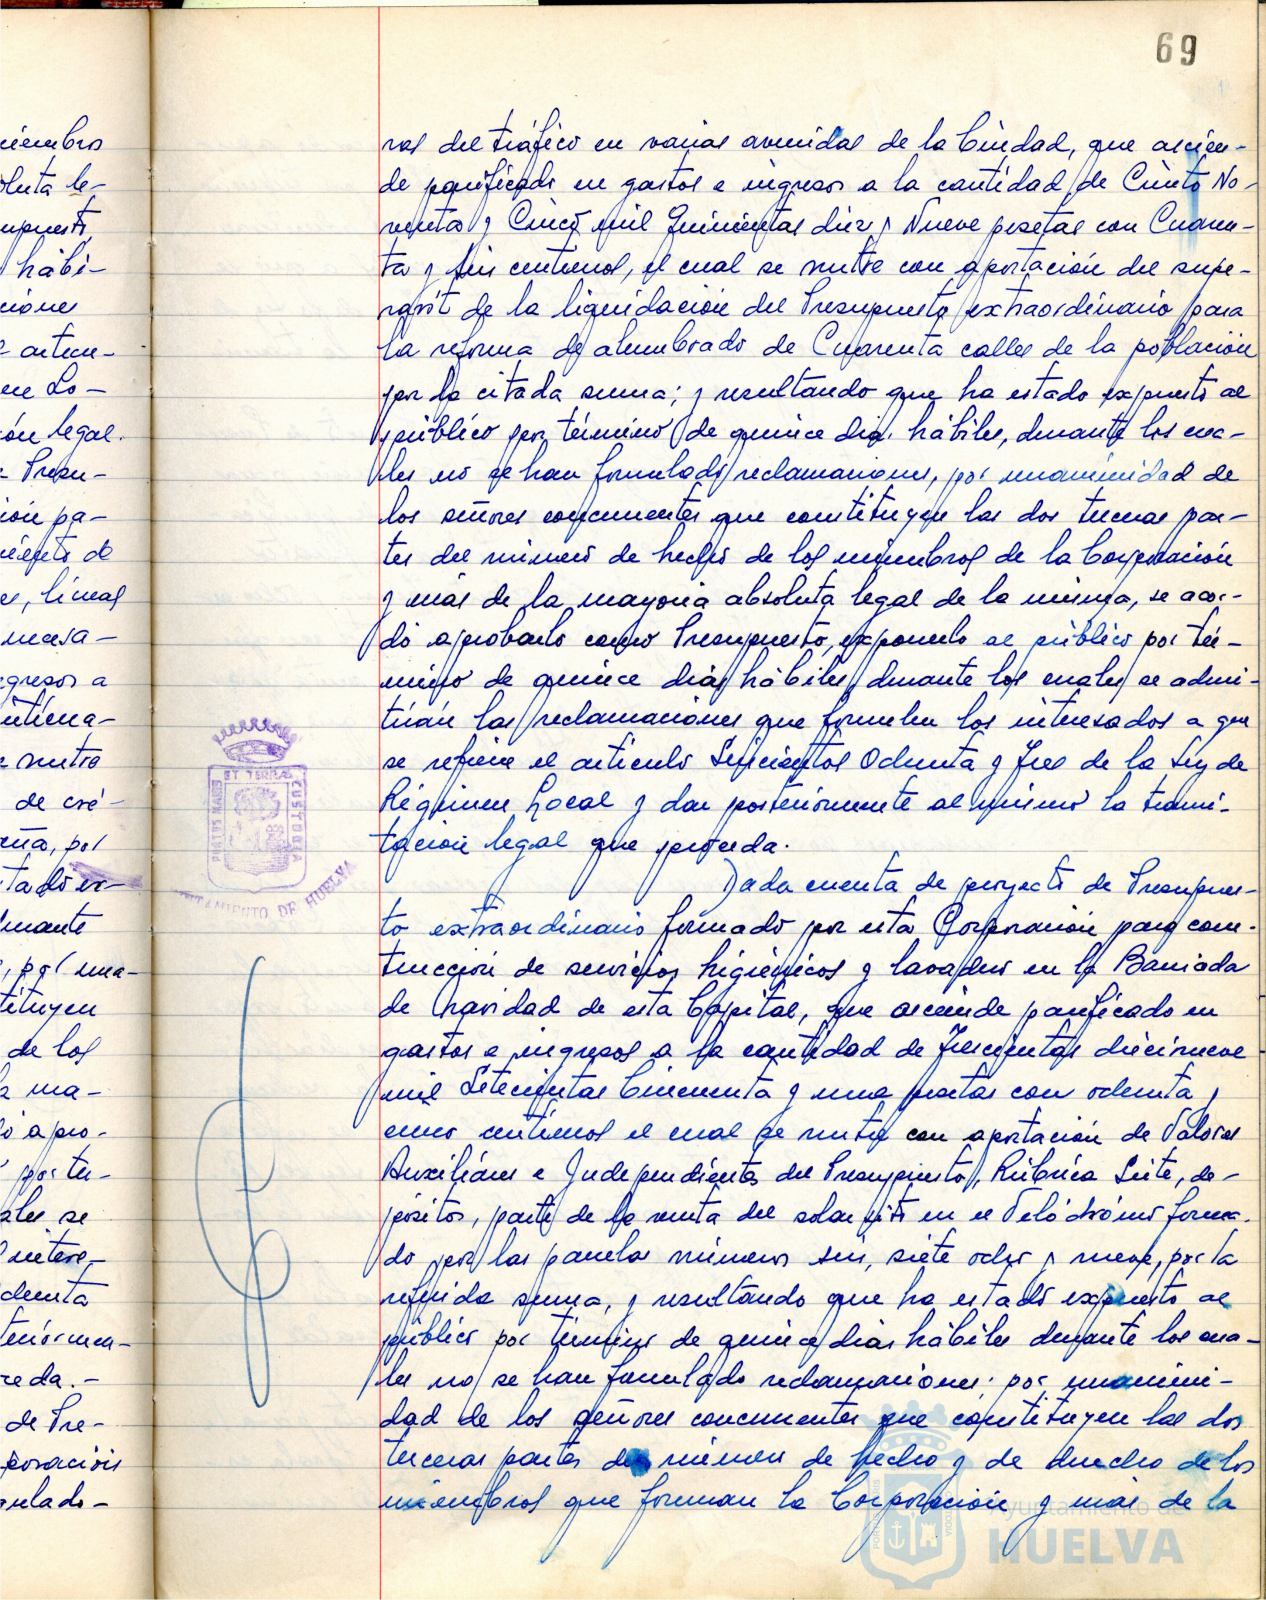 69
ras del tráfico en varias avenidas de la Ciudad, que ascien-
de panificado en gastos e ingresos a la cantidad de Ciento No-
venta y Cinco mil Quinientas diez y Nueve pesetas con Cuaren-
ta y seis centimos, el cual se nutre con aportación del supe-
ravit de la liquidación del Presupuesto extraordinario para
la reforma de alumbrado de Cuarenta calles de la población
por la citada suma; y resultando que ha estado expuesto al
público por término de quince dias hábiles, durante los cua-
les no se han formulado reclamaciones, por unanimidad de
los señores concurrentes que constituyen las dos terceras par-
tes del número de hecho de los miembros de la Corporación
y más de la mayoria absoluta legal de la misma, se acor-
dó aprobarlo como Presupuesto, exponerlo al público por tér-
mino de quince dias hábiles, durante los cuales se admi-
tirán las reclamaciones que formulen los interesados a que
se refiere el articulo Seiscientos Ochenta y Tres de la Ley de
Régimen Local y dar posteriormente al mismo la trami-
tación legal que proceda.
Dada cuenta de proyecto de Presupues-
to extraordinario formado por esta Corporación para cons-
trucción de servicios higiénicos y lavaderos en la Barriada
de Navidad de esta Capital, que asciende panificado en
gastos e ingresos a la cantidad de Trescientas diecinueve
mil Setecientas Cincuenta y una pesetas con ochenta y
cinco centimos el cual se nutre con aportación de Valores
Auxiliares e Independientes del Presupuesto, Rúbrica Siete, de-
pósitos, parte de la venta del solar sito en el Velódromo forma-
do por las parcelas números seis, siete ocho y nueve, por la
referida suma, y resultando que ha estado expuesto al
público por término de quince dias hábiles durante los cua-
les no se han formulado reclamaciones; por unanimi-
dad de los señores concurrentes que constituyen las dos
terceras partes del número de hecho y de derecho de los
miembros que forman la Corporación y más de la
PORTUS MARIS ET TERRAE CUSTODIA
AYUNTAMIENTO DE HUELVA
Ayuntamiento de
HUELVA